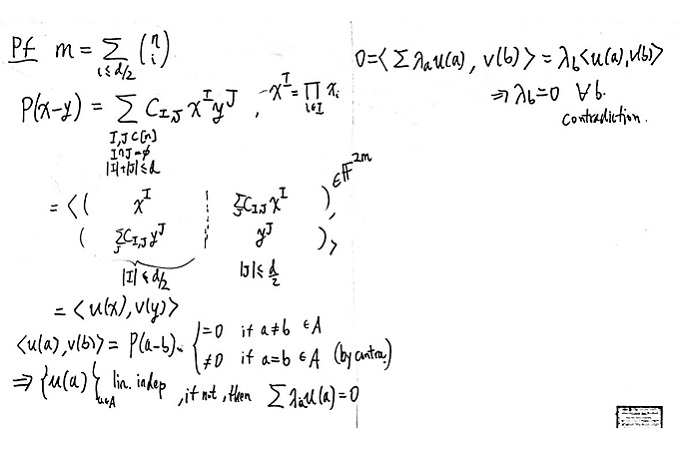 Pf m = Σ_{i≤d/2} (n i)
P(x-y) = Σ_{I,J⊂[n] I∩J=φ |I|+|J|≤d} C_{I,J} x^I y^J , x^I = Π_{i∈I} x_i
= <( x^I | Σ_J C_{I,J} x^I ) ∈ F^{2m} ,
( Σ_J C_{I,J} y^J | y^J ) , >
|I| ≤ d/2 |J| ≤ d/2
= <u(x), v(y)>
<u(a), v(b)> = P(a-b). { =0 if a≠b ∈A
≠0 if a=b ∈A (by contra)
⇒ {u(a)}_{a∈A} lin. indep , if not, then Σ λ_a u(a) = 0
0 = < Σ λ_a u(a) , v(b) > = λ_b <u(a), v(b)>
⇒ λ_b = 0 ∀b.
contradiction.